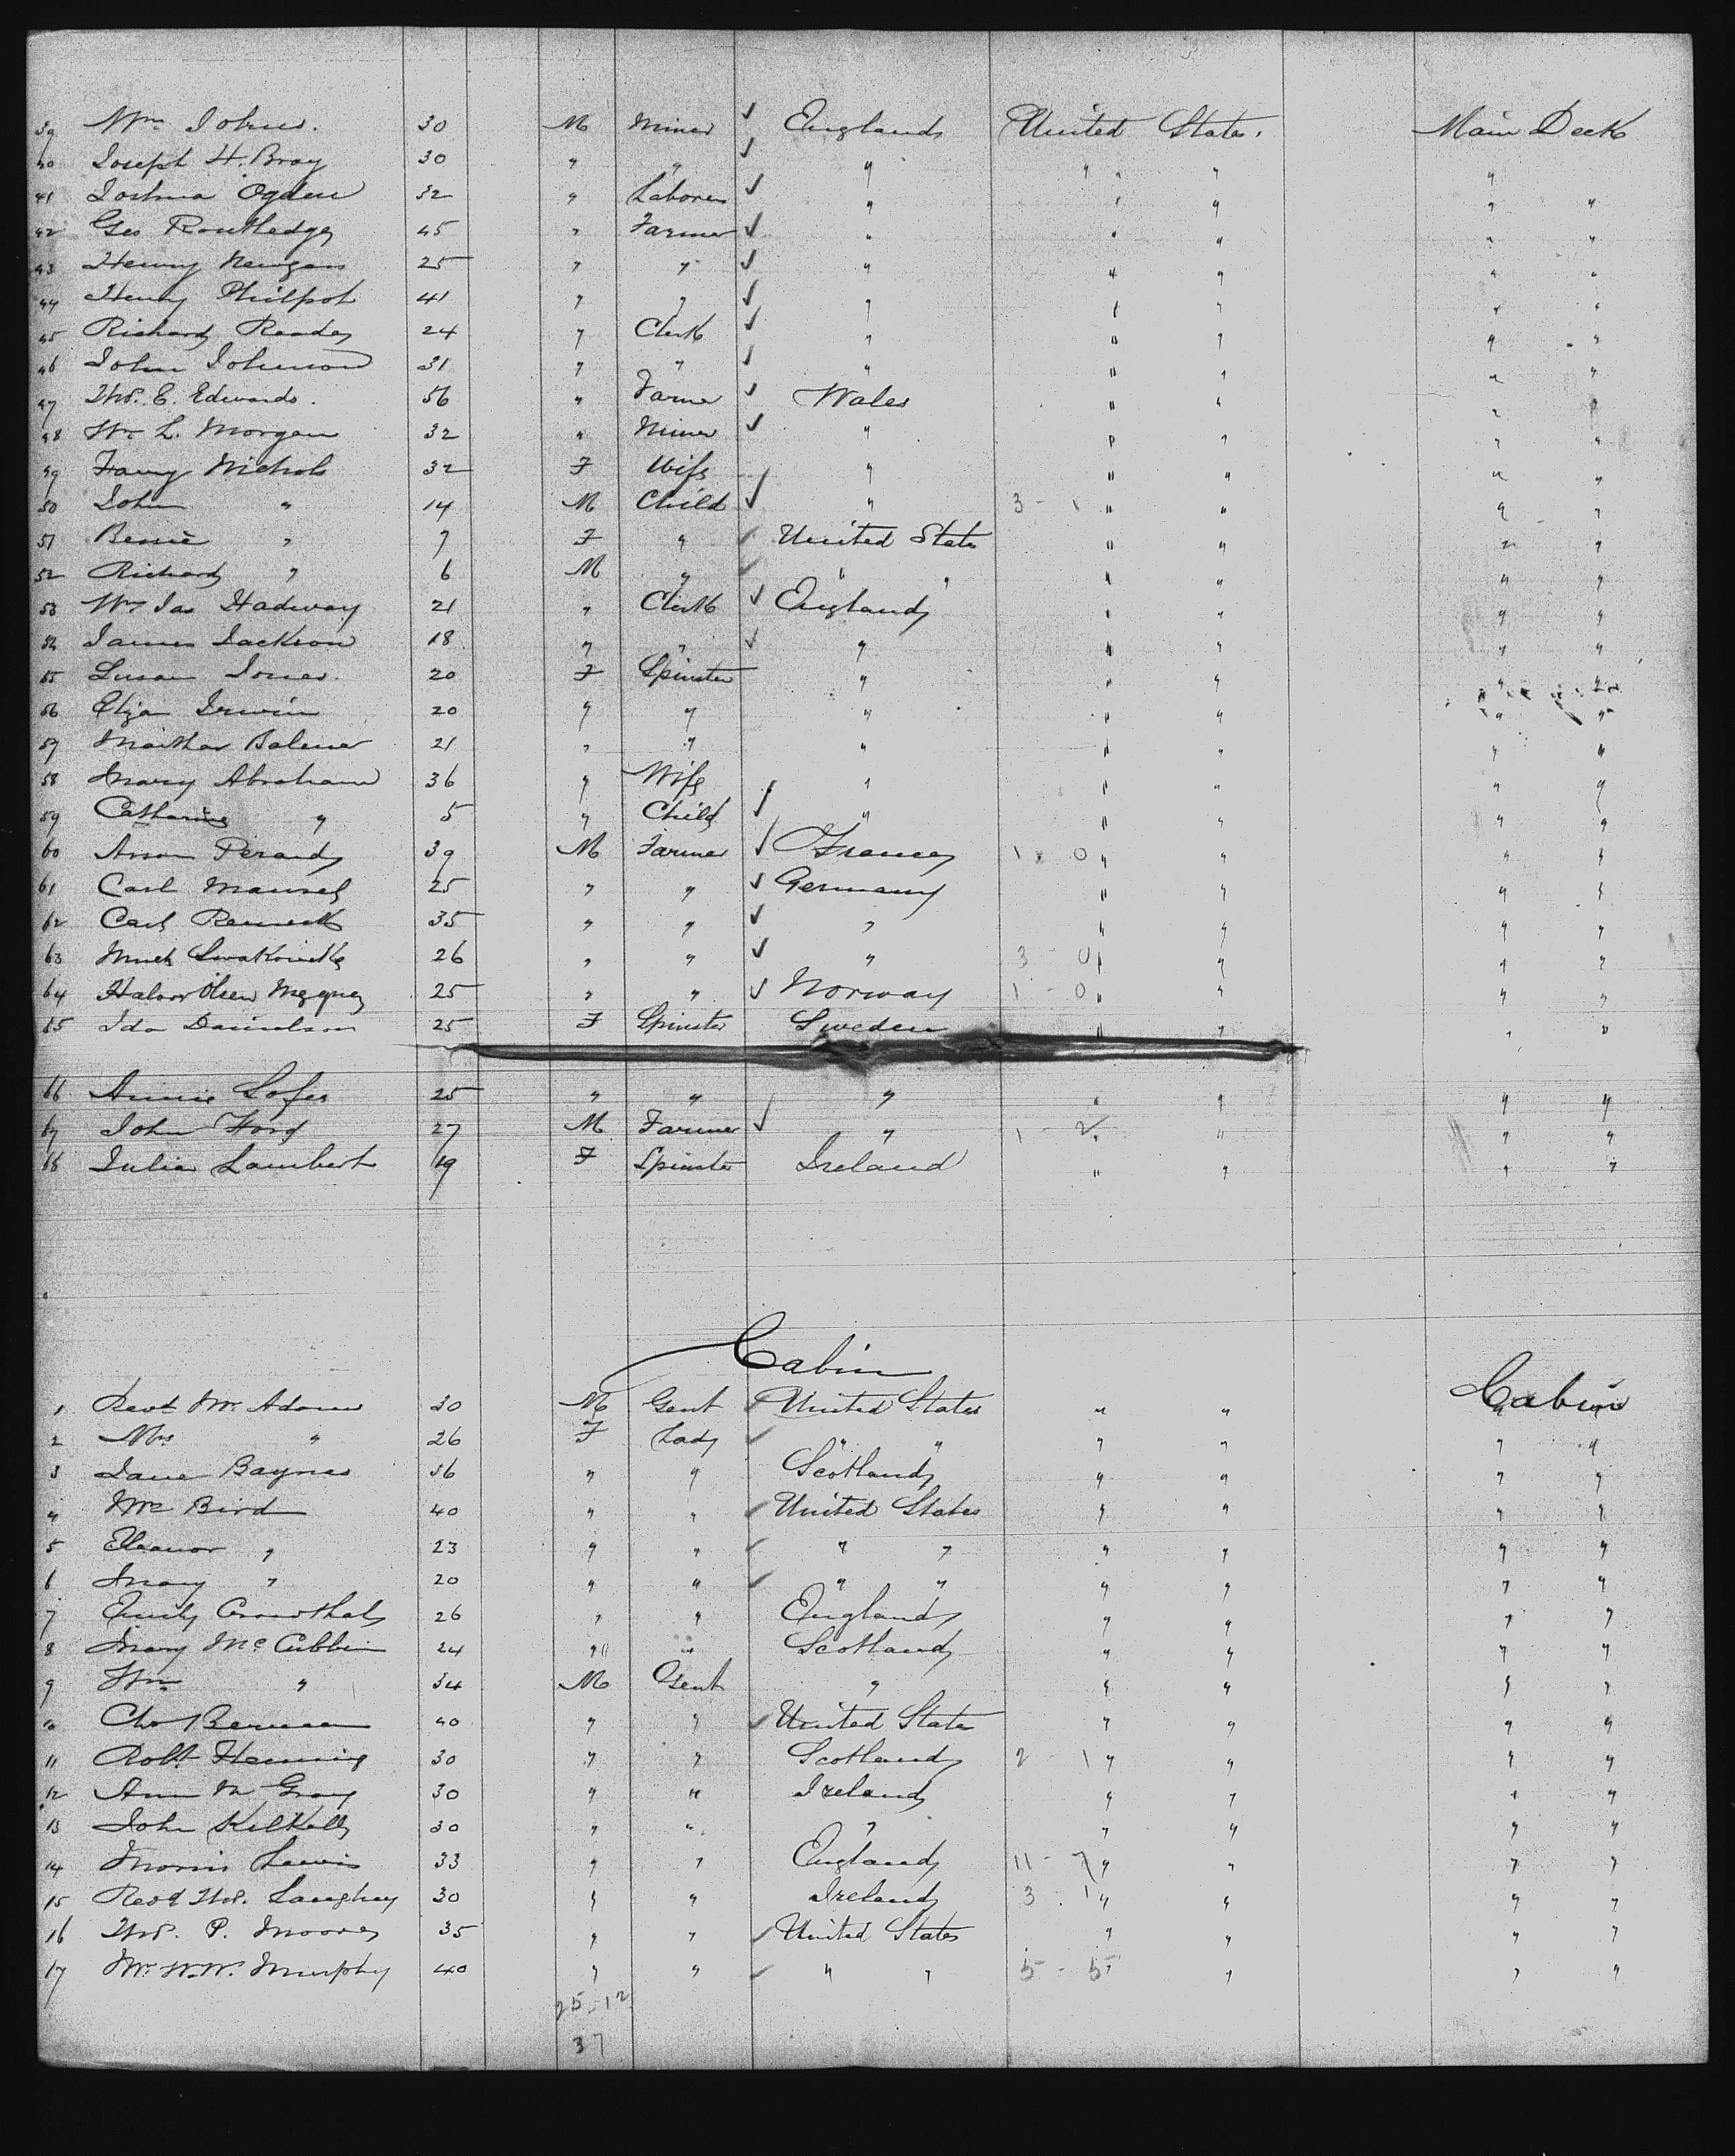 39 Wm Johns. 30 M Miner ✓ England United States. Main Deck
40 Joseph H. Bray 30 " " ✓ " " " " "
41 Joshua Ogden 32 " Laborer ✓ " " " " "
42 Geo Routledge 45 " Farmer ✓ " " " " "
43 Henry Newgan 25 " " ✓ " " " " "
44 Henry Philpot 41 " " ✓ " " " " "
45 Richard Reade 24 " Clerk ✓ " " " " "
46 John Johnson 31 " " ✓ " " " " "
47 Thos. E. Edwards. 56 " Farmer ✓ Wales " " " "
48 Wm L. Morgan 32 " Miner ✓ " " " " "
49 Fanny Nichols 32 F Wife " " " " "
50 John " 14 M Child ✓ " 3 - 1 " " " "
51 Bessie " 7 F " ✓ United States " " " "
52 Richard " 6 M " ✓ " " " " " "
53 Wm Jas Hadway 21 " Clerk ✓ England " " " "
54 James Jackson 18 " " ✓ " " " " "
55 Susan Jones. 20 F Spinster " " " " "
56 Eliza Irwin 20 " " " " " " "
57 Martha Balmer 21 " " " " " " "
58 Mary Abraham 36 " Wife " " " " "
59 Catharine " 5 " Child ✓ " " " " "
60 Perand 39 M Farmer ✓ France 1 - 0 " " " "
61 Carl Mansel 25 " " ✓ Germany " " " "
62 Carl 35 " " ✓ " " " " "
63 26 " " ✓ " 3 - 0 " " " "
64 Halvor Olsen 25 " " ✓ Norway 1 - 0 " " " "
65 Ida Danielson 25 F Spinster Sweden " " " "
66 Annie Lofes 25 " " " " " " "
67 John Ford 27 M Farmer ✓ " 1 - 2 " " " "
68 Julia Lambert 19 F Spinster Ireland " " " "
Cabin
Cabin
1 Revd Mr. Adams 30 M Gent ✓ United States " " " "
2 Mrs " 26 F Lady ✓ " " " " " "
3 Jane Baynes 56 " " Scotland " " " "
4 Mrs Bird 40 " " ✓ United States " " " "
5 Eleanor " 23 " " ✓ " " " " " "
6 Mary " 20 " " ✓ " " " " " "
7 Emily 26 " " England " " " "
8 Mary McCubbin 24 " " Scotland " " " "
9 Wm " 34 M Gent " " " " "
10 Chs 40 " " ✓ United States " " " "
11 Robt Fleming 30 " " Scotland 2 1 " " " "
12 M Gray 30 " " Ireland " " " "
13 John Kilkelly 30 " " " " " " "
14 Morris Lewis 33 " " England 11 - 7 " " " "
15 Revd Thos. Langhey 30 " " Ireland 3 . 1 " " " "
16 Thos. P. Moore 35 " " ✓ United States " " " "
17 Mr. W.W. Murphy 40 " " ✓ " " 5 - 5 " " " "
25 . 12
37